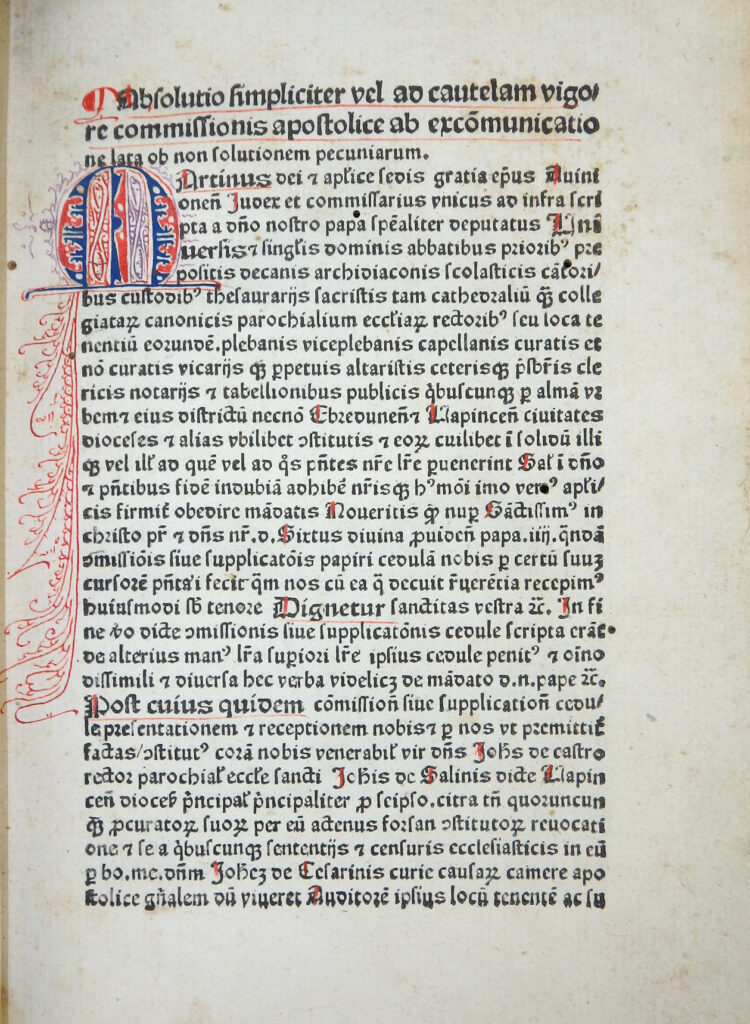 Absolutio simpliciter vel ad cautelam vigo/
re commissionis apostolice ab excõmunicatio
ne lata ob non solutionem pecuniarum.
MArtinus dei ⁊ apl'ice sedis gratia ep̃us Auini
onen̄ Judex et commissarius vnicus ad infra scri
pta a dño nostro papa sp̃ealiter deputatus Uni
uersis ⁊ singl'is dominis abbatibus priorib⁹ pre
positis decanis archidiaconis scolasticis cãtori/
bus custodib⁹ thesaurarijs sacristis tam cathedraliũ q̃ꝫ colle
giataꝝ canonicis parochialium eccl'iaꝝ rectorib⁹ seu loca te
nentiũ eorundẽ.plebanis viceplebanis capellanis curatis et
nõ curatis vicarijs qꝫ ꝑpetuis altaristis ceterisqꝫ p̃sbr̃is cle
ricis notarijs ⁊ tabellionibus publicis q̃buscunqꝫ ꝑ almã vr
bem ⁊ eius districtũ necnõ Ebredunen̄ ⁊ Uapincen̄ ciuitates
dioceses ⁊ alias vbilibet ꝯstitutis ⁊ eoꝝ cuilibet ĩ solidũ illi
qꝫ vel ill' ad quẽ vel ad q̃s p̃ntes nr̃e lr̃e ꝑuenerint Sal' ĩ dño
⁊ p̃ntibus fidẽ indubiã adhibẽ nr̃isqꝫ h⁹mõi imo ver⁹ apl'i/
cis firmit' obedire mãdatis Noueritis ꝙ nuꝑ Sãctissim⁹ in
christo pr̃ ⁊ dñs nr̃.d. Sixtus diuina ꝓuiden̄ papa.iiij.q̃ndã
ꝯmissiõis siue supplicatõis papiri cedulã nobis ꝑ certũ suuꝫ
cursorẽ p̃nta'i fecit q̃m nos cũ ea q̃ decuit r̃uer̃etia recepim⁹
huiusmodi sb̃ tenore Dignetur sanctitas vestra ꝛc̃. In fi
ne ṽo dicte ꝯmissionis siue supplicatõnis cedule scripta erãt
de alterius man⁹ lr̃a suꝑiori lr̃e ipsius cedule penit⁹ ⁊ oĩno
dissimili ⁊ diuersa hec verba videlicꝫ de mãdato d.n.pape ꝛc̃.
Post cuius quidem cõmission̄ siue supplication̄ cedu/
le presentationem ⁊ receptionem nobis ⁊ ꝑ nos vt premittit'
factas/ꝯstitut⁹ corã nobis venerabil' vir dñs Joh̃s de castro
rector parochial' eccl'e sancti Joh̃is de Salinis dicte Uapin
cen̄ dioces' p̃ncipal' p̃ncipaliter ꝓ seipso.citra tñ quoruncun
q̃ꝫ ꝓcuratoꝝ suoꝝ per eũ actenus forsan ꝯstitutoꝝ reuocati
one ⁊ se a q̃buscunqꝫ sententijs ⁊ censuris ecclesiasticis in eũ
ꝑ bo.me.dñm Joh̃eꝫ de Cesarinis curie causaꝝ camere apo
stolice gñalem dũ viueret Auditorẽ ipsius locũ tenentẽ ac su